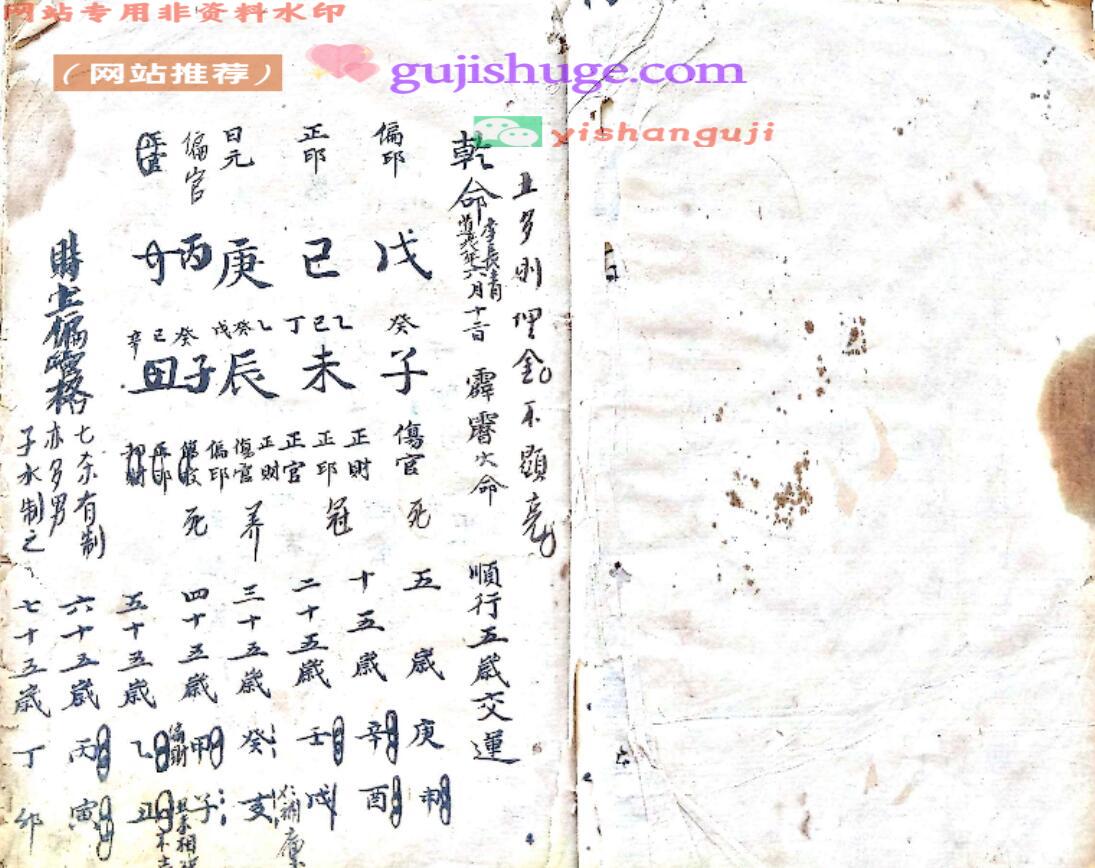 网站专用非资料水印
（网站推荐）
gujishuge.com
yishanguji
土多則埋金不顯亮
乾命
李長清
六月十
霹靂火命
順行五歲交運
偏印
戊
癸
子
傷官
死
正印
己
丁己乙
未
正財
正印
正官
冠
日元
庚
戊癸乙
辰
正財
傷官
偏印
养
偏官
丙
癸
子
死
己
辛
丑
七杀有制
亦多男
子水制之
五歲
庚
申
十五歲
辛
酉
二十五歲
壬
戌
三十五歲
癸
亥
四十五歲
甲
子
偏財
五十五歲
乙
丑
六十五歲
丙
寅
七十五歲
丁
卯